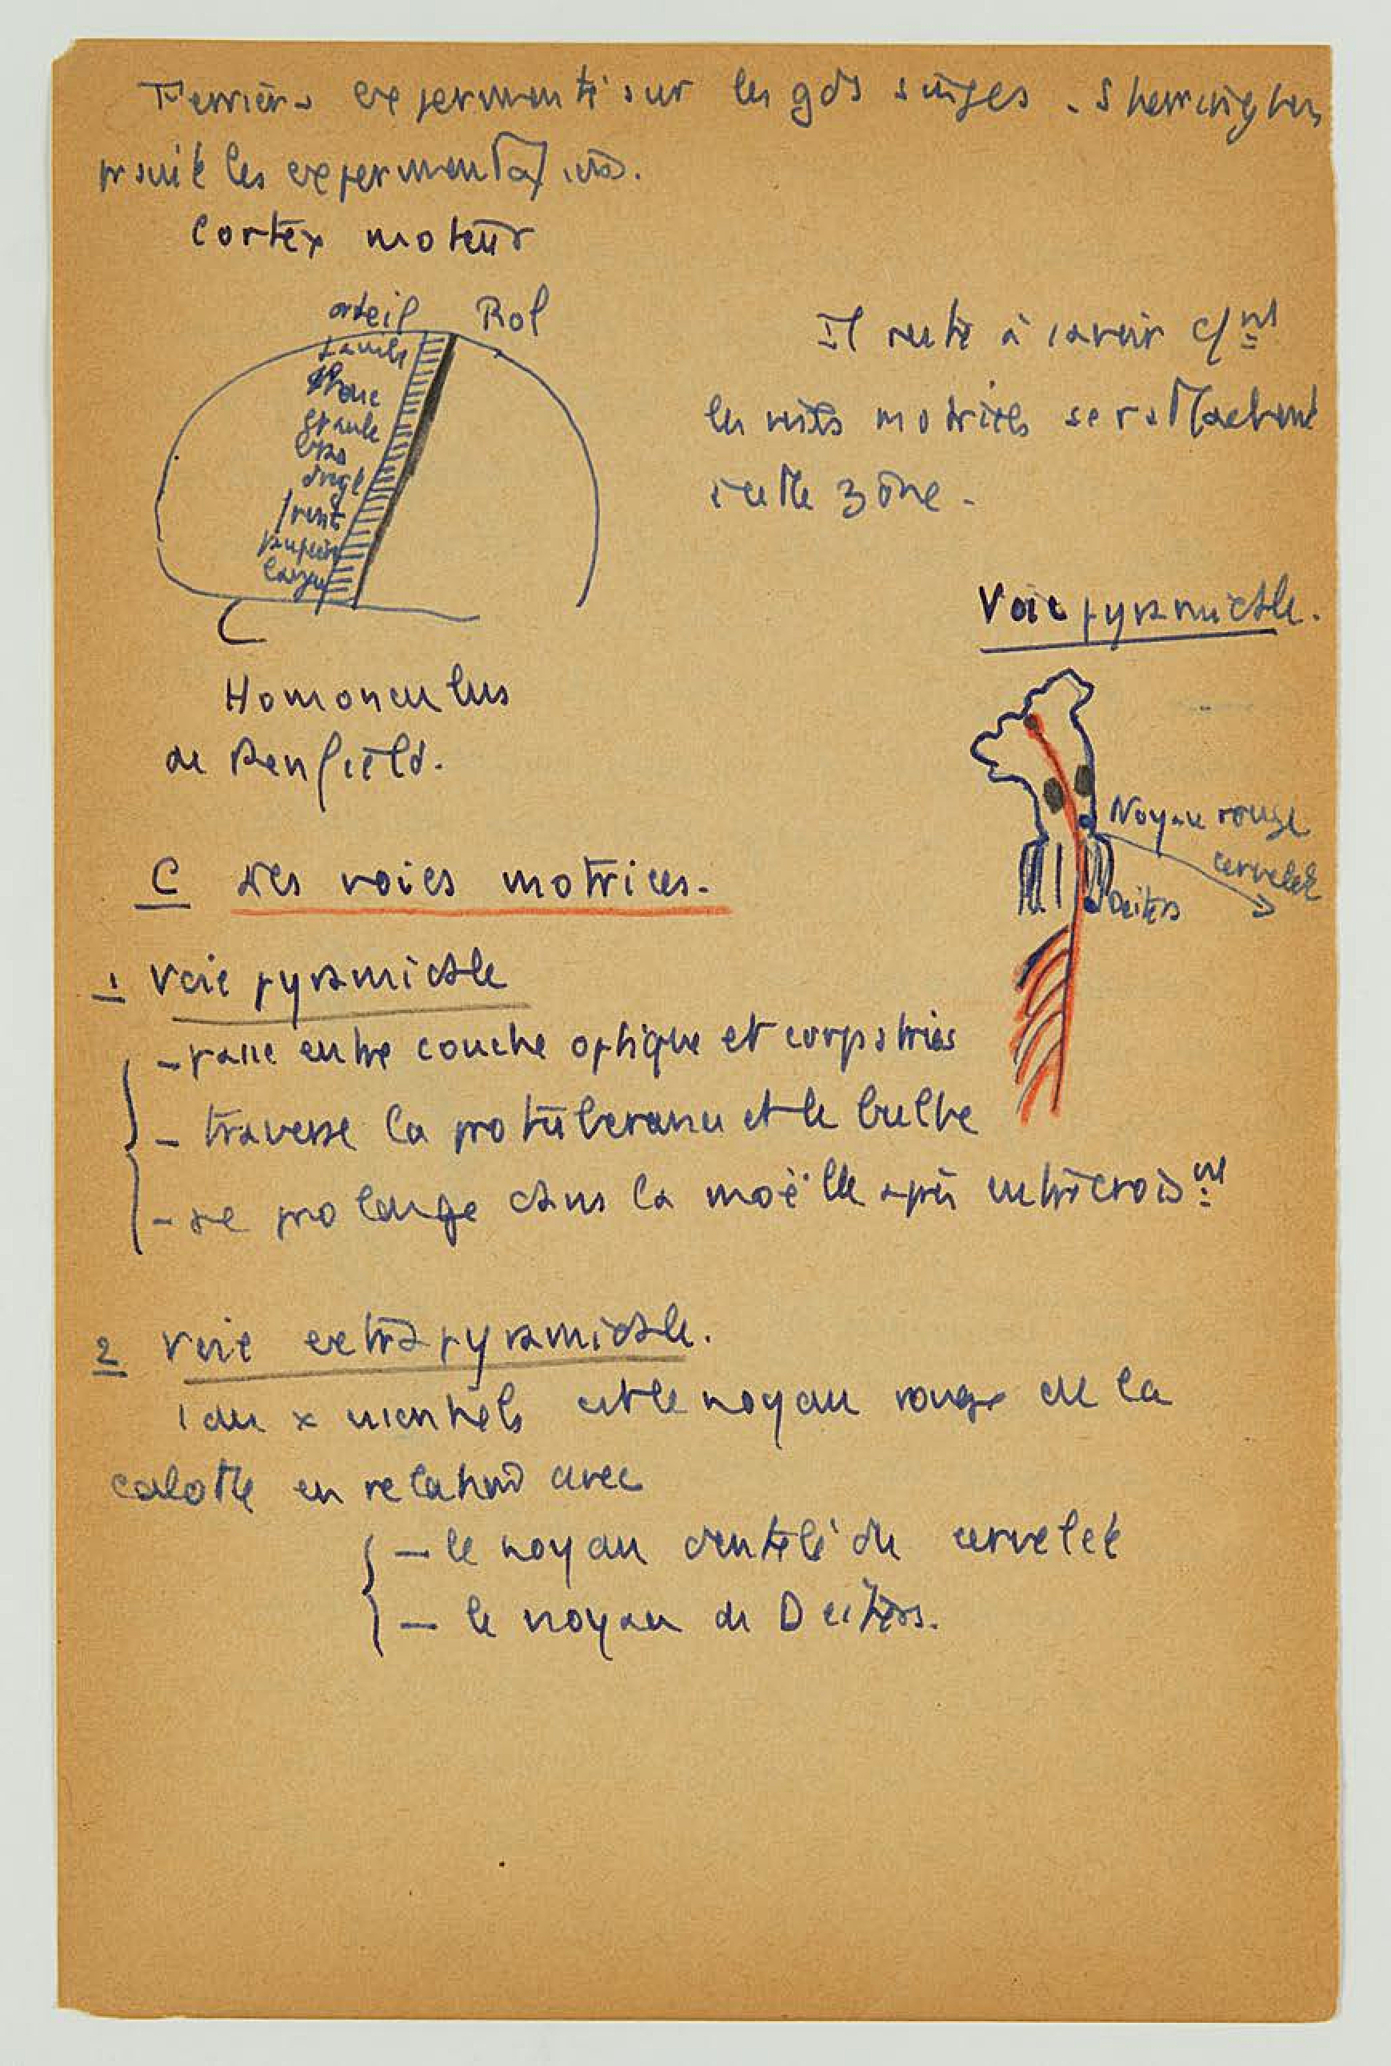 Ferrier a experimenté sur les gds singes. Sherrington
les experimentations.
Cortex moteur
orteil Rol
jambe
épaule
doigt
larynx
Il reste à savoir c/nt
les voies motrices se rattachent
à cette zône -
Voie pyramidale.
Homonculus
de Penfield.
Noyau rouge
cervelet
Deiters
C Les voies motrices.
1 Voie pyramidale
- passe entre couche optique et corps striés
- traverse la protubérance et le bulbe
- se prolonge dans la moëlle après entrecroisnt
2 Voie extrapyramidale.
est le noyau rouge de la
calotte en relation avec
- le noyau dentelé du cervelet
- le noyau de Deiters.